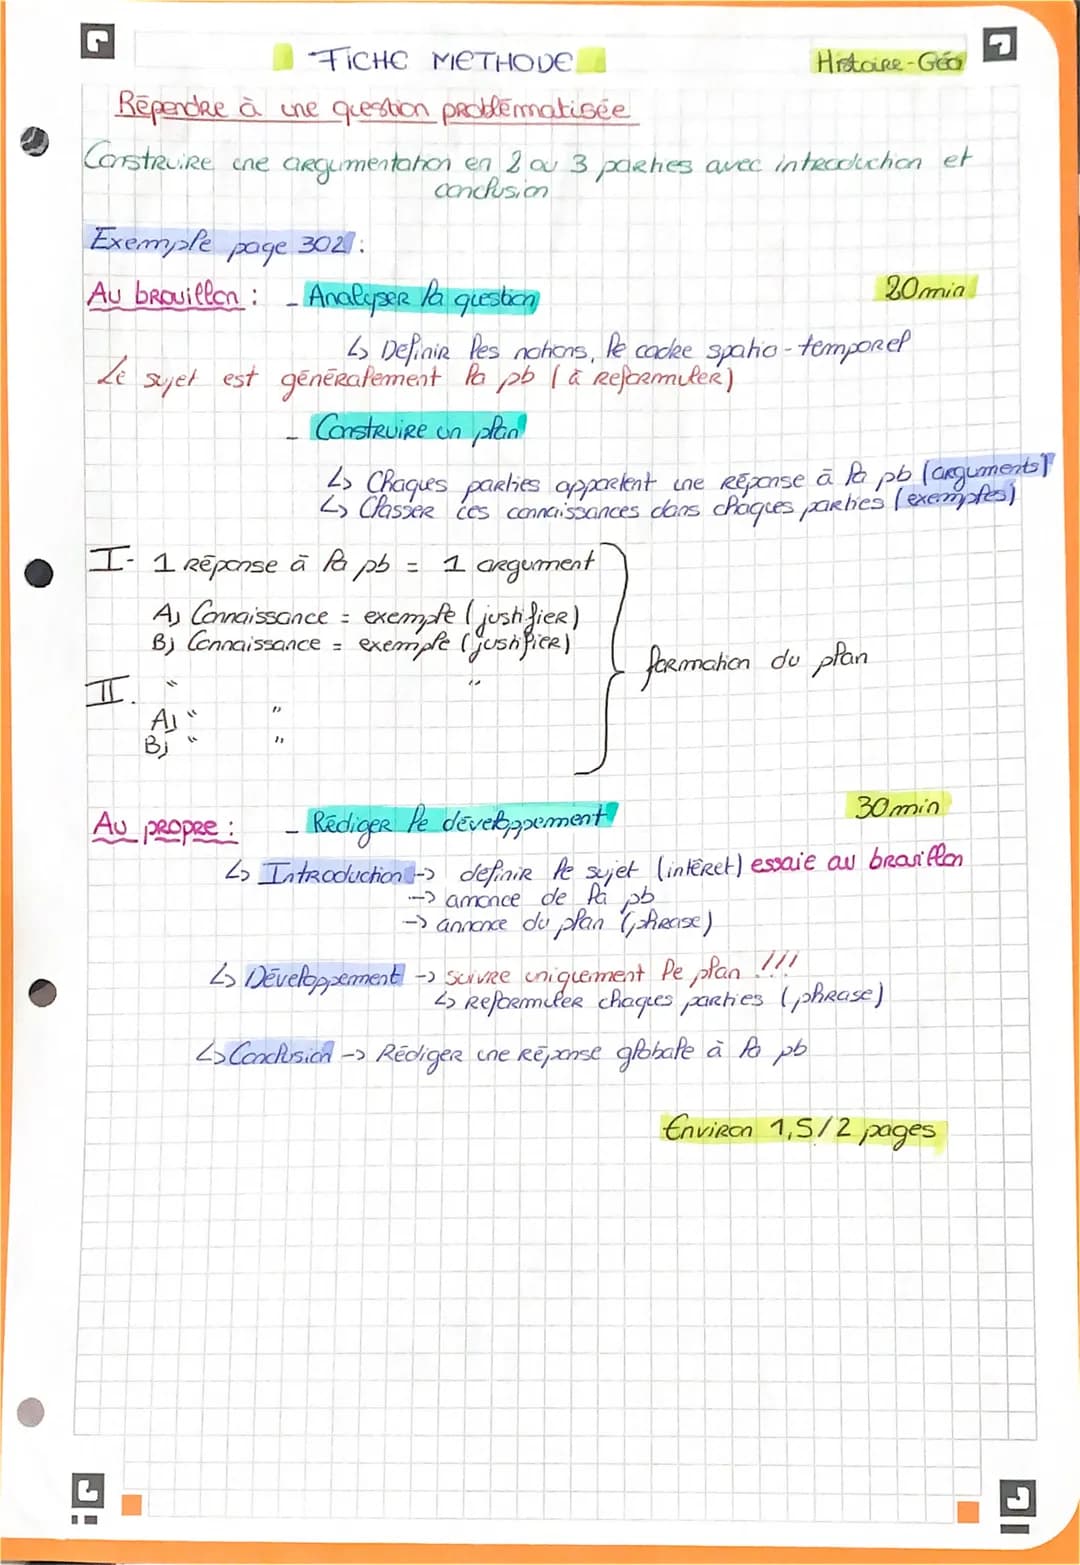 FICHE METHODE
Histoire-Géo
Répondre à une question problématisée
Construire une argumentation en 2 ou 3 parties avec introduction et
conclusion
Exemple page 302 :
Au brouillon : - Analyser la question 20min
↳ Definir les notions, le cadre spatio-temporel
Le sujet est généralement la pb (à reformuler)
- Construire un plan
↳ Chaques parties apportent une réponse à la pb (arguments)
↳ Classer ces connaissances dans chaques parties (exemples)
I- 1 réponse à la pb = 1 argument
A) Connaissance = exemple (justifier)
B) Connaissance = exemple (justifier)
formation du plan
II. " "
A) " "
B) " "
Au propre : - Rédiger le développement 30min
↳ Introduction -> definir le sujet (intéret) essaie au brouillon
-> annonce de la pb
-> annonce du plan (phrase)
↳ Développement -> suivre uniquement le plan !!!
↳ Reformuler chaques parties (phrase)
↳ Conclusion -> Rédiger une réponse globale à la pb
Environ 1,5/2 pages